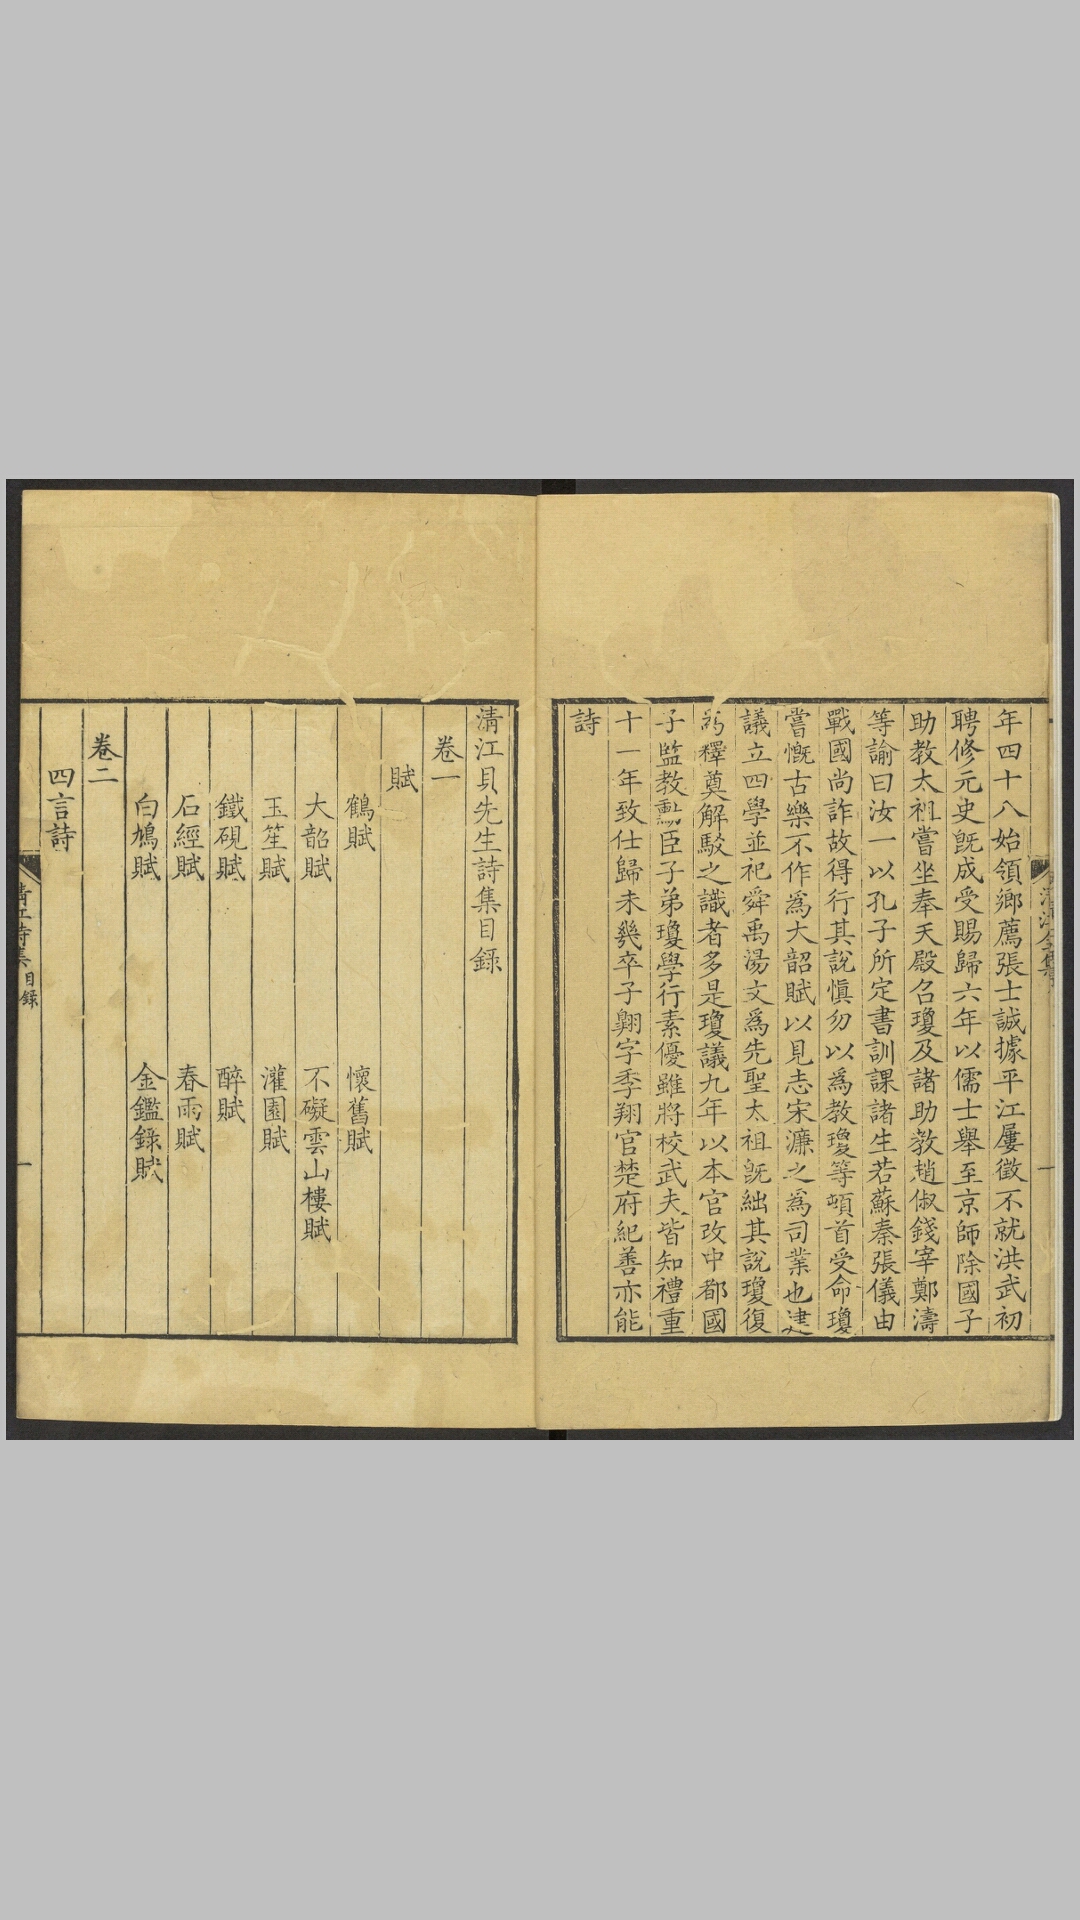 年四十八始領鄉薦張士誠據平江屢徵不就洪武初
聘修元史旣成受賜歸六年以儒士舉至京師除國子
助教太祖嘗坐奉天殿召瓊及諸助教趙俶錢宰鄭濤
等諭曰汝一以孔子所定書訓課諸生若蘇秦張儀由
戰國尚詐故得行其說愼勿以爲教瓊等頓首受命瓊
嘗慨古樂不作爲大韶賦以見志宋濂之爲司業也建
議立四學並祀舜禹湯文爲先聖太祖旣絀其說瓊復
爲釋奠解駁之識者多是瓊議九年以本官改中都國
子監教勳臣子弟瓊學行素優雖將校武夫皆知禮重
十一年致仕歸未幾卒子翺字季翔官楚府紀善亦能
詩
清江貝先生詩集目錄
卷一
賦
鶴賦 懷舊賦
大韶賦 不礙雲山樓賦
玉笙賦 灌園賦
鐵硯賦 醉賦
石經賦 春雨賦
白鳩賦 金鑑錄賦
卷二
四言詩
清江詩集 目錄 一